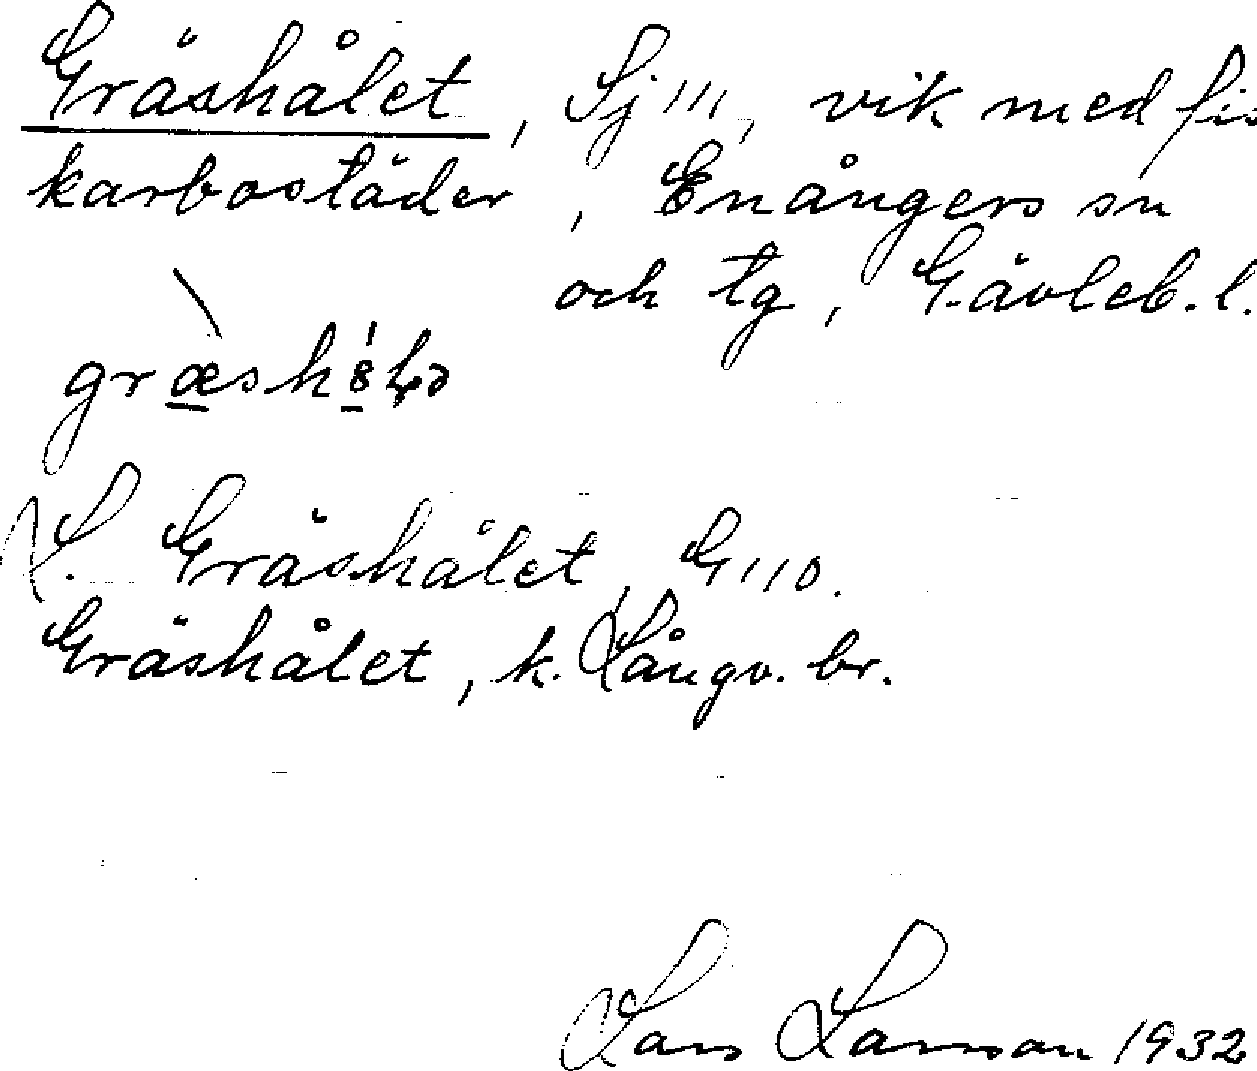 Gräshålet, Sj 111, vik med fis
karbostäder, Enångers sn
och tg, Gävleb. l.
L. Gräshålet, G 110.
Gräshålet, k. Långv. br.
Lars Larsson 1932